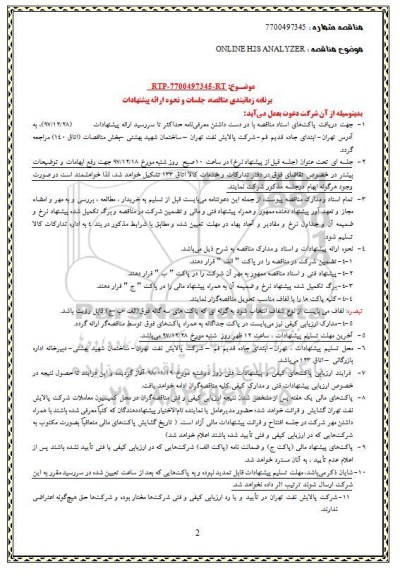 مناقصه شماره : 7700497345
موضوع مناقصه : ONLINE H2S ANALYZER
موضوع: RTP-7700497345-RT
برنامه زمانبندی مناقصه، جلسات و نحوه ارائه پیشنهادات
بدینوسیله از آن شرکت دعوت بعمل می‌آید:
۱- جهت دریافت پاکت‌های اسناد مناقصه با در دست داشتن معرفی‌نامه حداکثر تا سررسید ارائه پیشنهادات (۹۷/۱۲/۲۸)، به
آدرس تهران- ابتدای جاده قدیم قم- شرکت پالایش نفت تهران – ساختمان شهید بهشتی -بخش مناقصات (اتاق ۱۴۰) مراجعه
گردد.
۲- جلسه ای تحت عنوان (جلسه قبل از پیشنهاد نرخ) در ساعت ۱۰ صبح روز شنبه مورخ ۹۷/۱۲/۱۸ جهت رفع ابهامات و توضیحات
بیشتر در خصوص تقاضای فوق در دفتر تدارکات وخدمات کالا اتاق ۱۳۳ تشکیل خواهد شد. لذا خواهشمند است در صورت
وجود هرگونه ابهام درجلسه مذکور شرکت نمایند.
۳- تمام اسناد ومدارک مناقصه پیوست، از جمله این دعوتنامه می‌بایست قبل از تسلیم به خریدار ، مطالعه ، بررسی و به مهر و امضاء
مجاز و تعهد آور پیشنهاد دهنده ممهور و همراه پیشنهاد فنی و مالی و تضمین شرکت در مناقصه و برگ تکمیل شده پیشنهاد نرخ و
ضمیمه آن و جداول نرخ و مقادیر و آحاد بهاء در مهلت تعیین شده و مطابق با شرایط مذکور در بند ٤ به اداره تدارکات کالا
تسلیم شود.
٤- نحوه ارائه پیشنهادات و اسناد و مدارک مناقصه به شرح ذیل می‌باشد.
۱-٤- تضمین شرکت در مناقصه را در پاکت " الف " قرار دهند.
۲-٤- پیشنهاد فنی و اسناد مناقصه ممهور به مهر آن شرکت را در پاکت " ب " قرار دهند.
۳-٤- برگ تکمیل شده پیشنهاد نرخ و ضمیمه آن به همراه پیشنهاد مالی را در پاکت " ج " قرار دهند.
٤-٤- کلیه پاکت ها را با لفاف مناسب تحویل مناقصه‌گزار نمایند.
تبصره: لفاف می بایست از نوع شفاف انتخاب شود به گونه ای که پاکت های سه گانه فوق(الف –ب-ج) قابل رویت باشد.
٥-٤- مدارک ارزیابی کیفی نیز می‌بایست در پاکت جداگانه به همراه پاکت‌های فوق توسط مناقصه‌گر ارائه گردد.
٥- آخرین مهلت تسلیم پیشنهادات ، ساعت ۱۲ ظهر روز شنبه مورخ ۹۷/۱۲/۲۸ می‌باشد.
٦- محل تسلیم پیشنهادات : تهران- ابتدای جاده قدیم قم – شرکت پالایش نفت تهران- ساختمان شهید بهشتی- دبیرخانه اداره
بازرگانی –اتاق ۱۳۳ می‌باشد.
۷- فرایند ارزیابی پاکت‌های کیفی و پیشنهادات فنی روز دوشنبه مورخ آغاز گردیده و این فرایند تا حصول نتیجه در
خصوص ارزیابی پیشنهادات فنی و مدارک کیفی کلیه مناقصه‌گران ادامه خواهد یافت.
۸- پاکت‌های مالی یک هفته پس از مشخص شدن نتیجه ارزیابی کیفی و فنی مناقصه‌گران در محل کمیسیون معاملات شرکت پالایش
نفت تهران گشایش و قرائت خواهد شد؛ حضور مدیرعامل یا نماینده تام‌الاختیار پیشنهاددهندگان که کتباً معرفی شده باشند با همراه
داشتن مهر شرکت در جلسه افتتاح و قرائت پیشنهادات مالی آزاد است. ( تاریخ گشایش پاکت‌های مالی متعاقباً بصورت مکتوب به
شرکت‌هایی که در ارزیابی کیفی و فنی تأیید شده باشند اعلام خواهد شد)
۹- پاکت‌های پیشنهاد مالی (پاکت ج) و ضمانت نامه (پاکت الف) شرکت‌هایی که در ارزیابی کیفی یا فنی تأیید نشده باشند پس از
اعلام عدم تأیید ، به آنان مسترد خواهد شد.
۱۰- شایان ذکر می‌باشد، مهلت تسلیم پیشنهادات قابل تمدید نبوده و به پاکت‌هایی که بعد از ساعت تعیین شده در سررسید مقرر به این
شرکت ارسال شوند ترتیب اثر داده نخواهد شد.
۱۱- شرکت پالایش نفت تهران در تأیید و یا رد ارزیابی کیفی و فنی شرکت‌ها مختار بوده و شرکت‌ها حق هیچ‌گونه اعتراضی
ندارند.
2